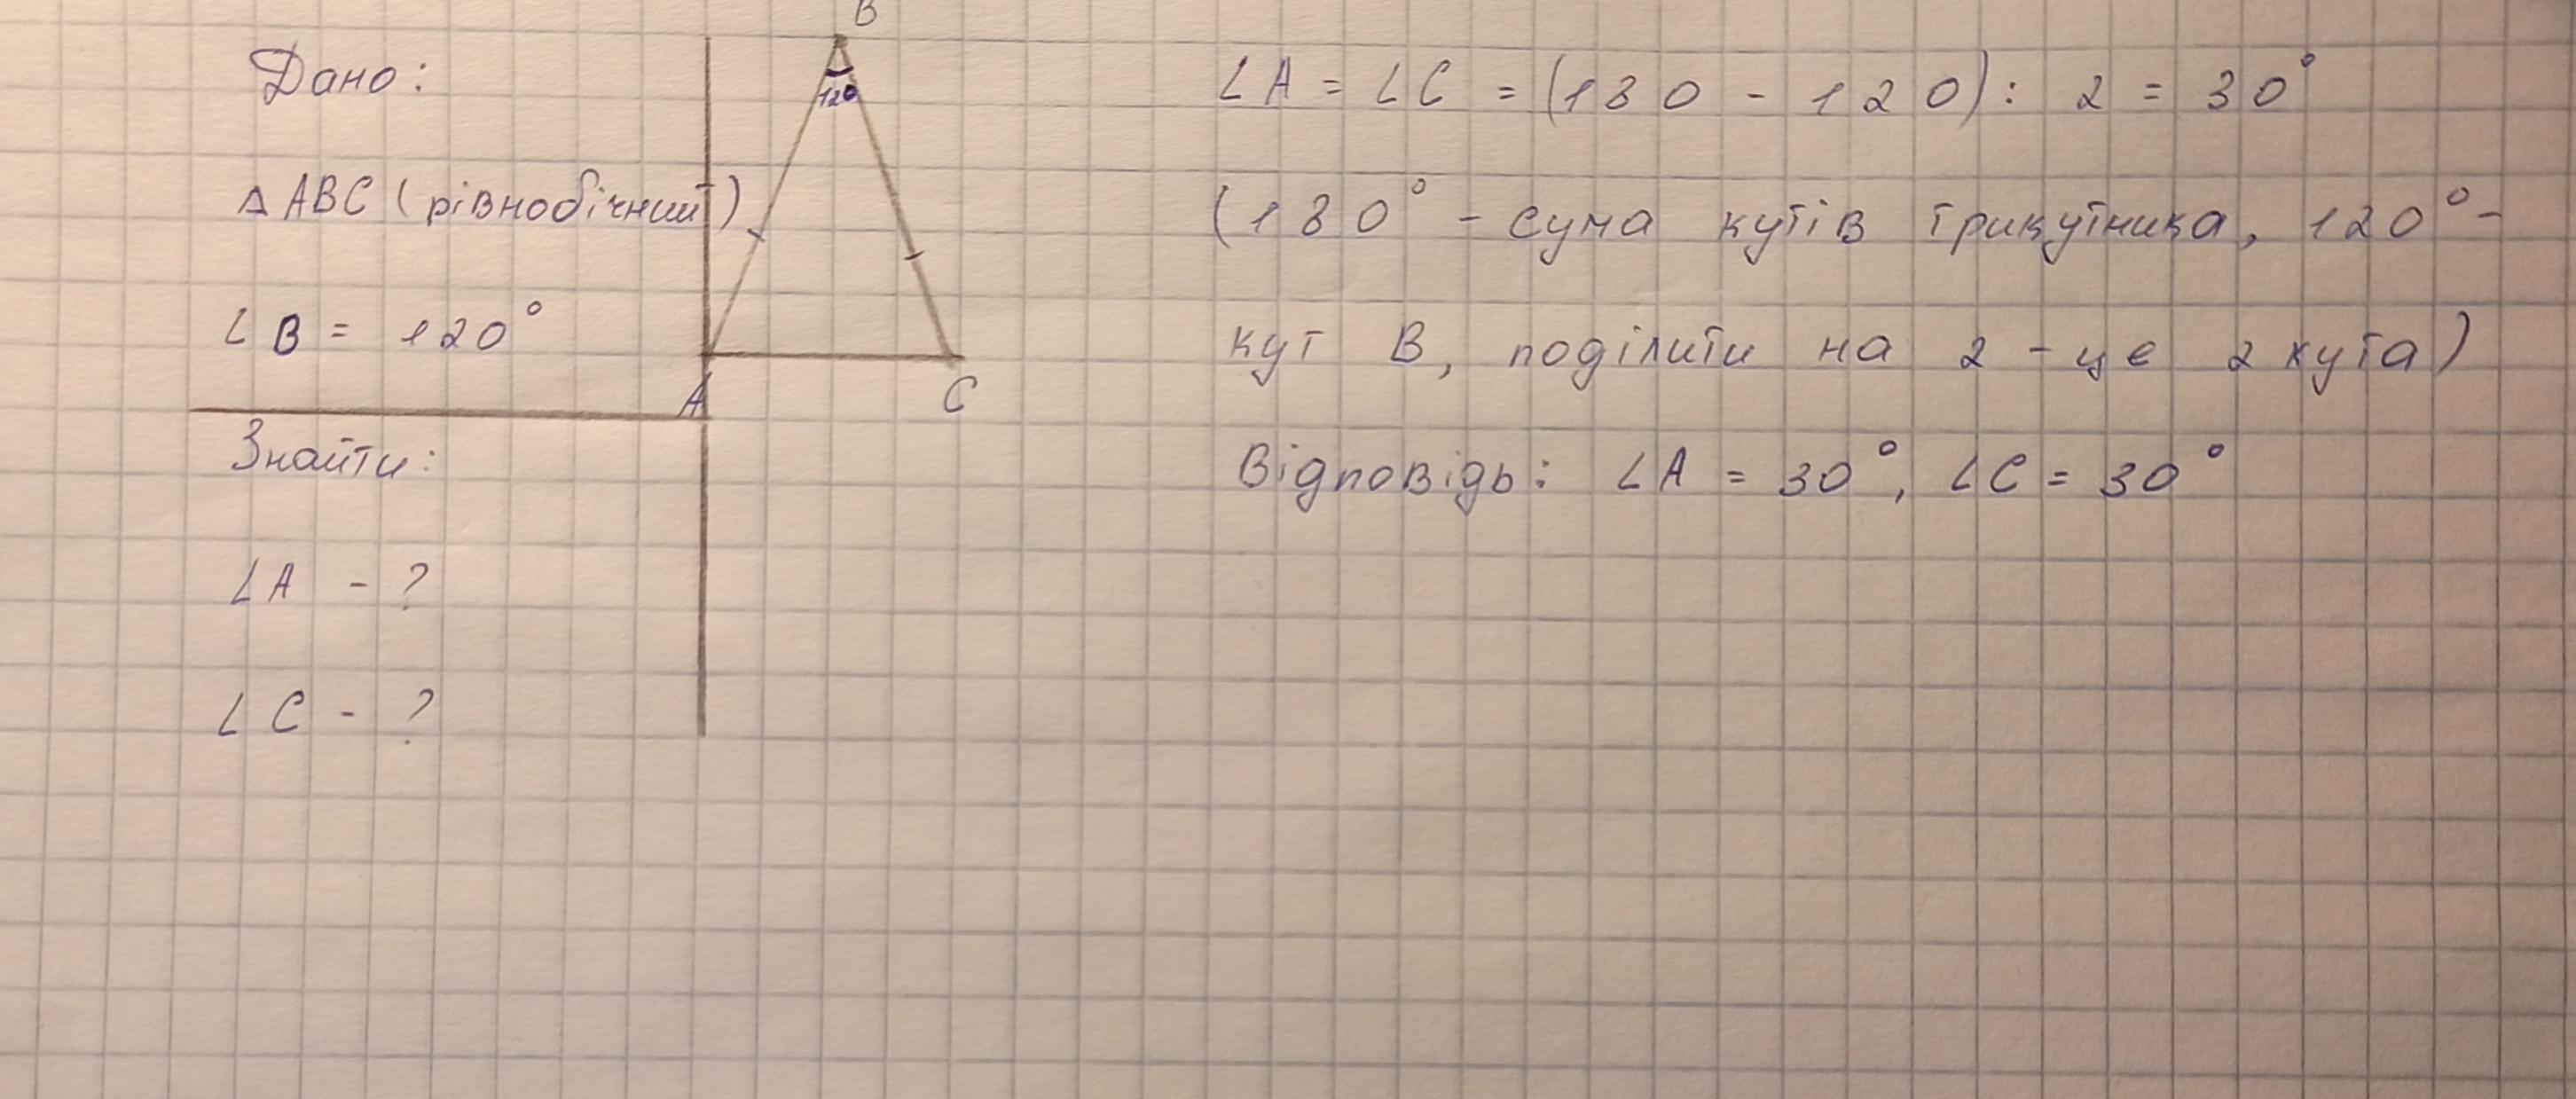 Дано:
△ABC (рівнобічний)
∠B = 120°
Знайти:
∠A - ?
∠C - ?
B
120
A
C
∠A = ∠C = (180 - 120) : 2 = 30°
(180° - сума кутів трикутника, 120° -
кут B, поділити на 2 - це 2 кута)
Відповідь: ∠A = 30°, ∠C = 30°